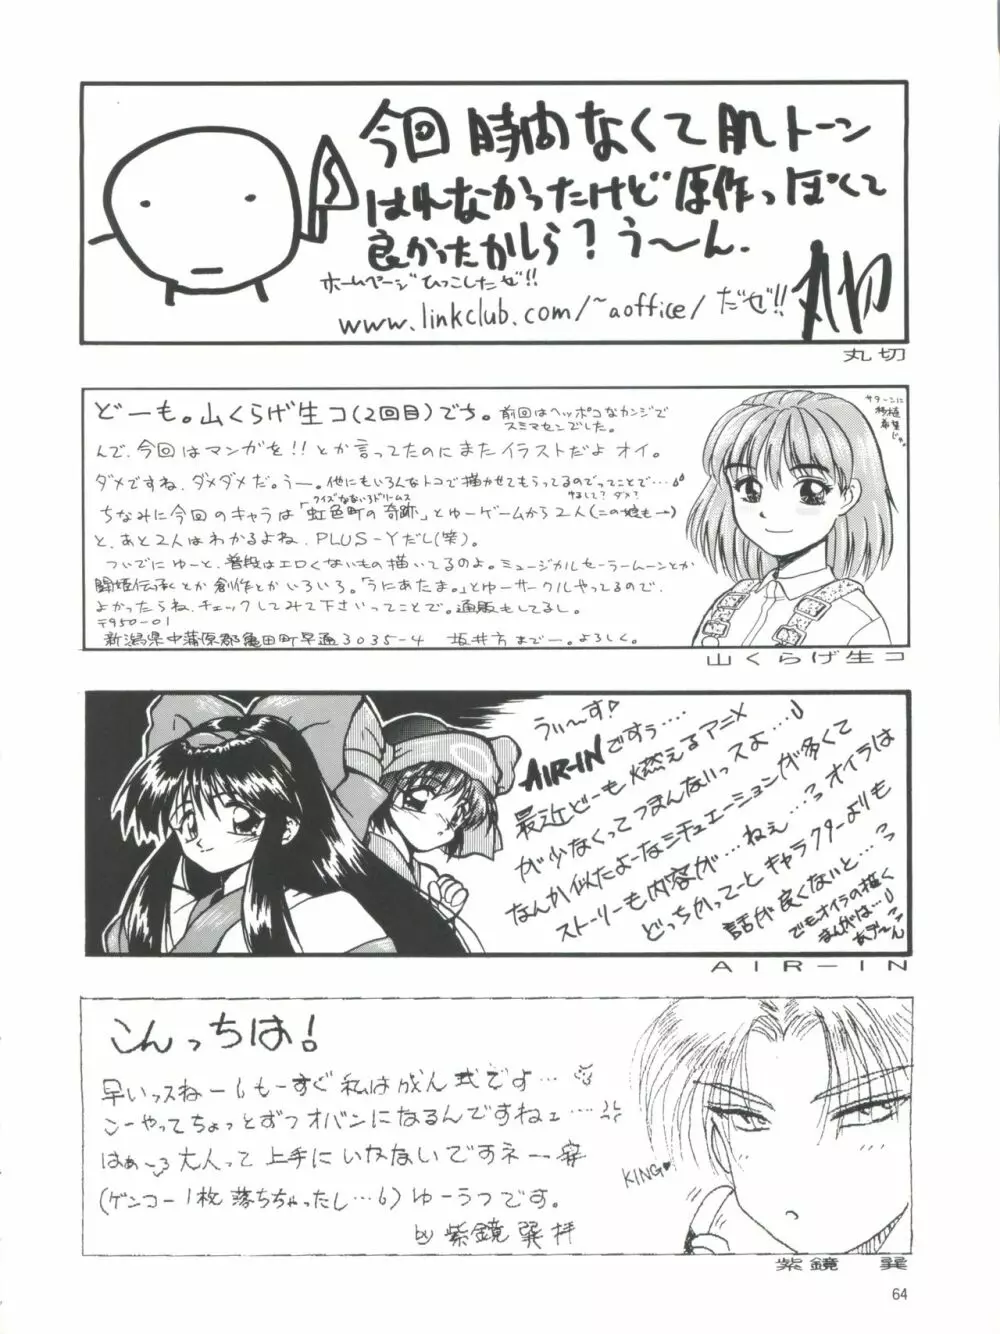 今回時間なくて肌トーン
はれなかったけど原作っぽくて
良かったかしら？う〜ん.
ホームページひっこしたぜ!!
www.linkclub.com/~aoffice/だぜ!!
丸切
丸切
どーも。山くらげ生コ(2回目)でち。前回はヘッポコなカンジで
スミマセンでした。
んで、今回はマンガを!!とか言ってたのにまたイラストだよ オイ。
ダメですね、ダメダメだ。うー。他にもいろんなトコで描かせてもらってるのでってことで…
クイズなないろドリームス
ゆるして?ダメ?
ちなみに今回のキャラは「虹色町の奇跡」とゆーゲームから2人(この娘も→)
と、あと2人はわかるよね、PLUS-Yだし(笑)。
ついでにゆーと、普段はエロくないもの描いてるのよ。ミュージカルセーラームーンとか
闘姫伝承とか創作とかいろいろ。「うにあたま。」とゆーサークルやってるので
よかったらね、チェックしてみて下さいってことで。通販もしてるし。
〒950-01
新潟県中蒲原郡亀田町早通3035-4 坂井方まで―。よろしく。
サターンに
移植
希望
じゃ。
山くらげ生コ
うぃ〜す!
AIR-INですぅ....
最近どーも燃えるアニメ
が少なくってつまんないっスよ...
なんか似たよーなシチュエーションが多くて
ストーリーも内容が...ねぇ...?オイラは
どっちかってーとキャラクターよりも
話が良くないと...?
でもオイラの描く
まんがは...
AIR-IN
こんっちは!
早いっスねーもーすぐ私は成ん式です…
こーやってちょっとずつオバンになるんですねェ…
はぁ〜大人って上手にいかないですネー
(ゲンコー1枚落ちちゃったし…)ゆーうつです。
by 紫鏡 巽 拝
KING♥
紫鏡 巽
64